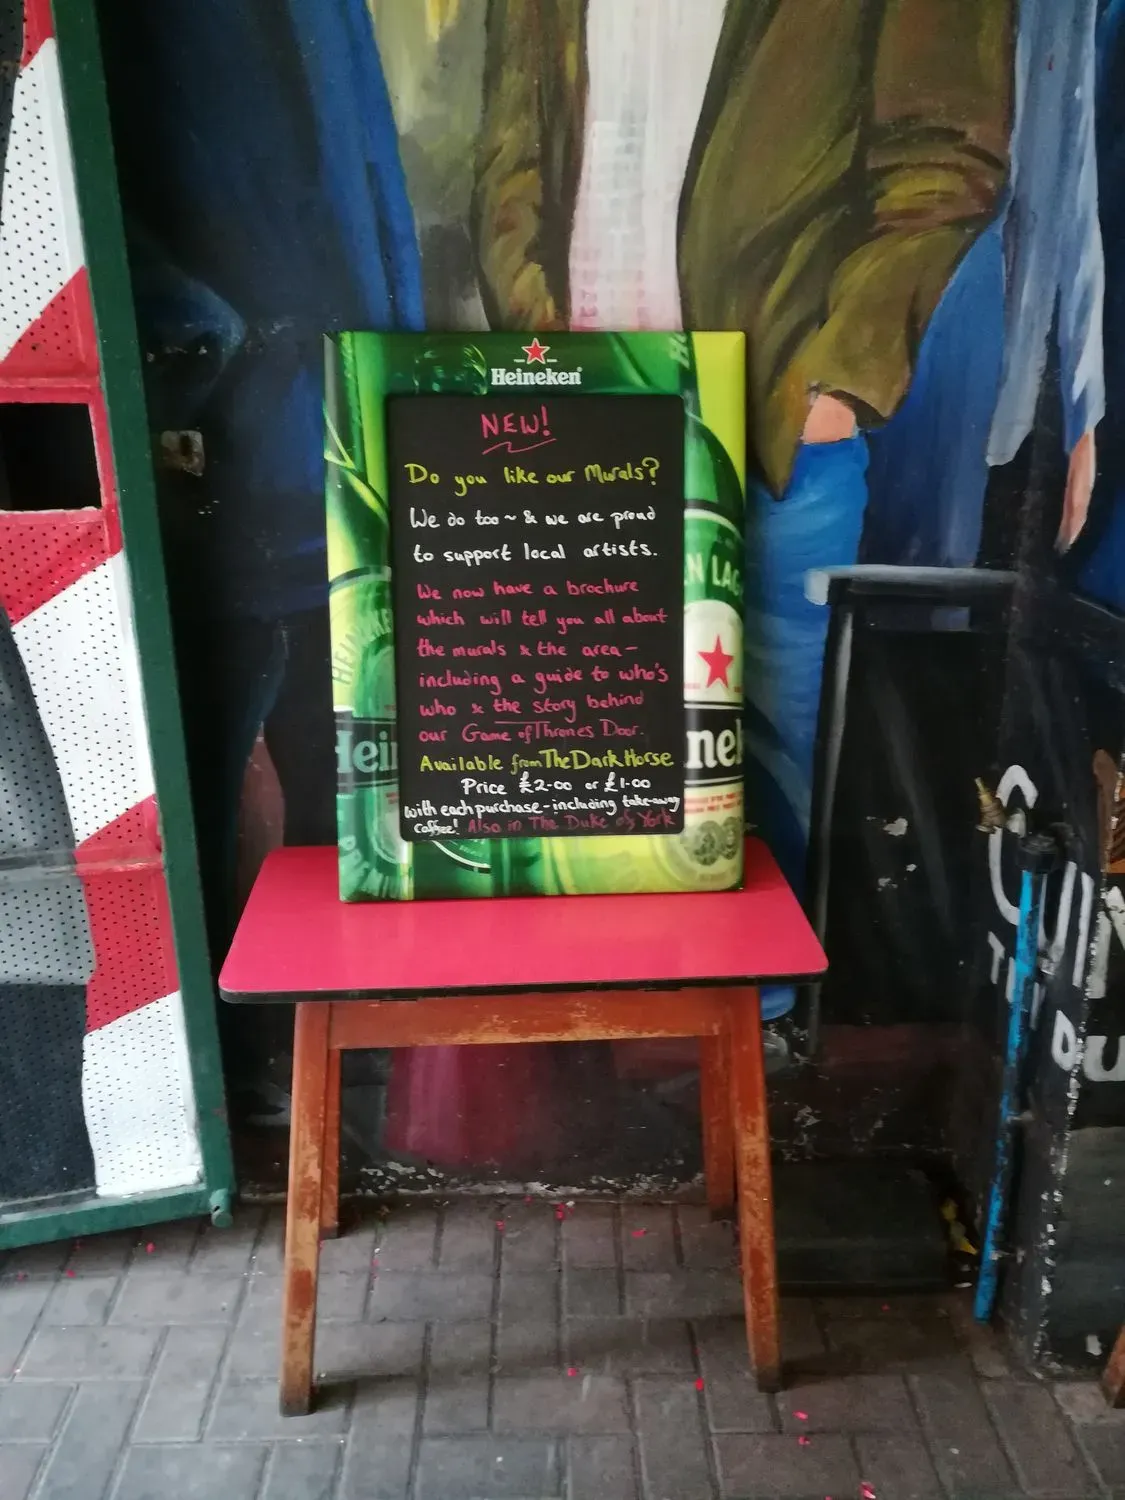 Heineken
NEW!
Do you like our Murals?
We do too ~ & we are proud
to support local artists.
We now have a brochure
which will tell you all about
the murals & the area -
including a guide to who's
who & the story behind
our Game of Thrones Door.
Available from The Dark Horse
Price £2-00 or £1-00
with each purchase - including take-away
Coffee! Also in The Duke of York
HEINEKE
Hein
N LAG
nek